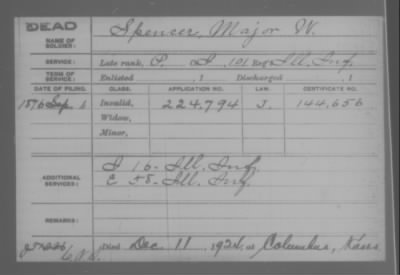 DEAD
NAME OF SOLDIER: Spencer, Major W.
SERVICE: Late rank, P. I 101 Reg't Ill. Inf.
TERM OF SERVICE: Enlisted , 1 Discharged , 1
DATE OF FILING. CLASS. APPLICATION NO. LAW. CERTIFICATE NO.
1876 Sep 6 Invalid, 224,794 J. 144,656
Widow,
Minor,
ADDITIONAL SERVICES: I 16 - Ill. Inf.
C 58 - Ill. Inf.
REMARKS:
Died Dec 11, 1926, at Columbus, Kans